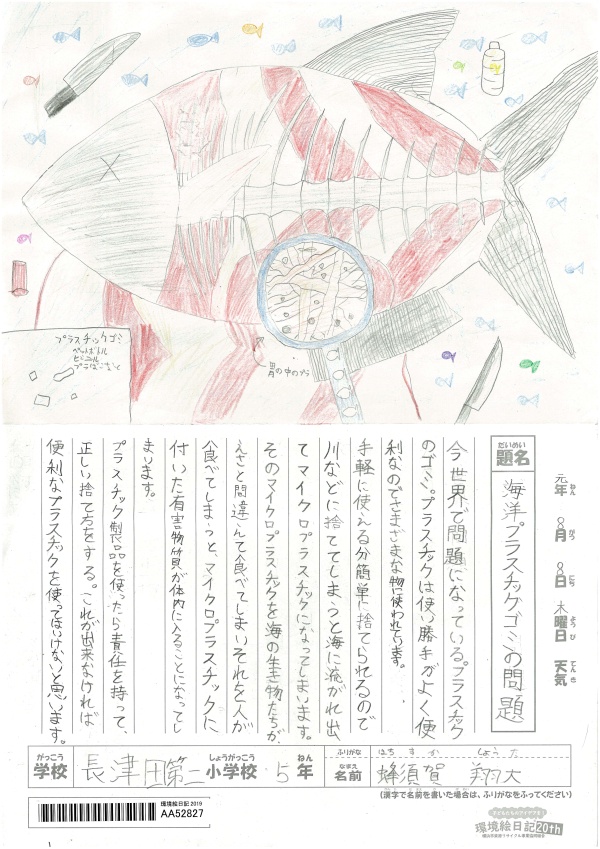 プラスチックゴミ
ペットボトル
ビニール
プラばこなど
胃の中のプラ
元年 8月 8日 木曜日 天気
ねん がつ にち ようび てんき
だいめい
題名
海洋プラスチックゴミの問題
今世界で問題になっているプラスチック
のゴミ。プラスチックは使い勝手がよく便
利なのでさまざまな物に使われています。
手軽に使える分簡単に捨てられるので
川などに捨ててしまうと海に流がれ出
てマイクロプラスチックになってしまいます。
そのマイクロプラスチックを海の生き物たちが、
えさと間違えて食べてしまいそれを人が
食べてしまうと、マイクロプラスチックに
付いた有害物質が体内に入ることになってし
まいます。
プラスチック製品を使ったら責任を持って、
正しい捨て方をする。これが出来なければ
便利なプラスチックを使ってはいけないと思います。
がっこう しょうがっこう ねん
学校 長津田第二小学校 5年
ふりがな はちすか しょうた
なまえ
名前 蜂須賀 翔大
(漢字で名前を書いた場合は、ふりがなをふってください)
環境絵日記2019
AA52827
環境絵日記20th